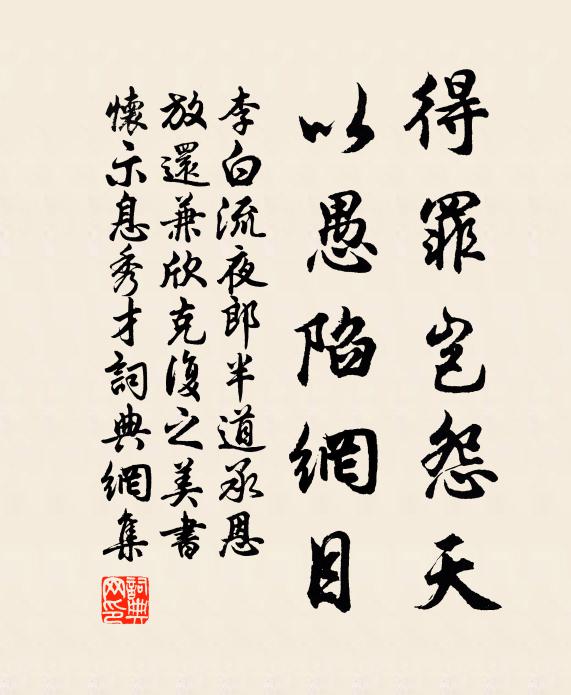 得罪岂怨天
以愚陷網目
李白流夜郎半道承恩
放還兼欣克復之美書
懷示息秀才詞典網集
詞典網印